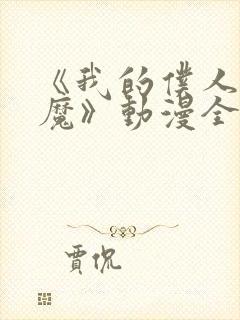 《我的僕人
魔》動漫全
賈侃